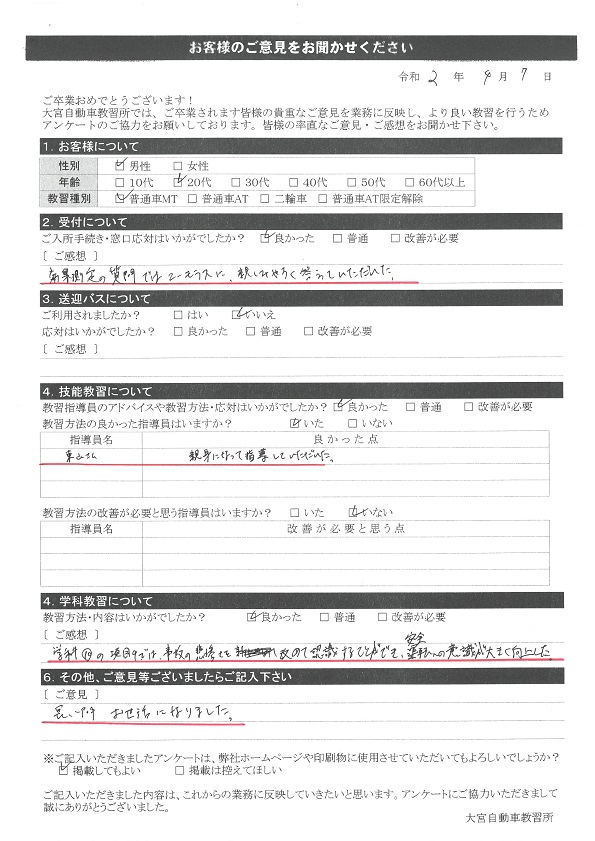 お客様のご意見をお聞かせください
令和 2 年 4 月 7 日
ご卒業おめでとうございます！
大宮自動車教習所では、ご卒業されます皆様の貴重なご意見を業務に反映し、より良い教習を行うため
アンケートのご協力をお願いしております。皆様の率直なご意見・ご感想をお聞かせ下さい。
1. お客様について
性別 ☑ 男性 □ 女性
年齢 □ 10代 ☑ 20代 □ 30代 □ 40代 □ 50代 □ 60代以上
教習種別 ☑ 普通車MT □ 普通車AT □ 二輪車 □ 普通車AT限定解除
2. 受付について
ご入所手続き・窓口応対はいかがでしたか？ ☑ 良かった □ 普通 □ 改善が必要
［ ご感想 ］
効果測定の質問ではユーモラスに、親しみやすく答えていただいた。
3. 送迎バスについて
ご利用されましたか？ □ はい ☑ いいえ
応対はいかがでしたか？ □ 良かった □ 普通 □ 改善が必要
［ ご感想 ］
4. 技能教習について
教習指導員のアドバイスや教習方法・応対はいかがでしたか？ ☑ 良かった □ 普通 □ 改善が必要
教習方法の良かった指導員はいますか？ ☑ いた □ いない
指導員名 良かった点
親身になって指導していただいた。
教習方法の改善が必要と思う指導員はいますか？ □ いた ☑ いない
指導員名 改善が必要と思う点
4. 学科教習について
教習方法・内容はいかがでしたか？ ☑ 良かった □ 普通 □ 改善が必要
［ ご感想 ］
学科の項目では、事故の悲惨さを改めて認識することができ、安全運転への意識が大きく向上した。
6. その他、ご意見等ございましたらご記入下さい
［ ご意見 ］
長い間 お世話になりました。
※ご記入いただきましたアンケートは、弊社ホームページや印刷物に使用させていただいてもよろしいでしょうか？
☑ 掲載してもよい □ 掲載は控えてほしい
ご記入いただきました内容は、これからの業務に反映していきたいと思います。アンケートにご協力いただきまして
誠にありがとうございました。
大宮自動車教習所